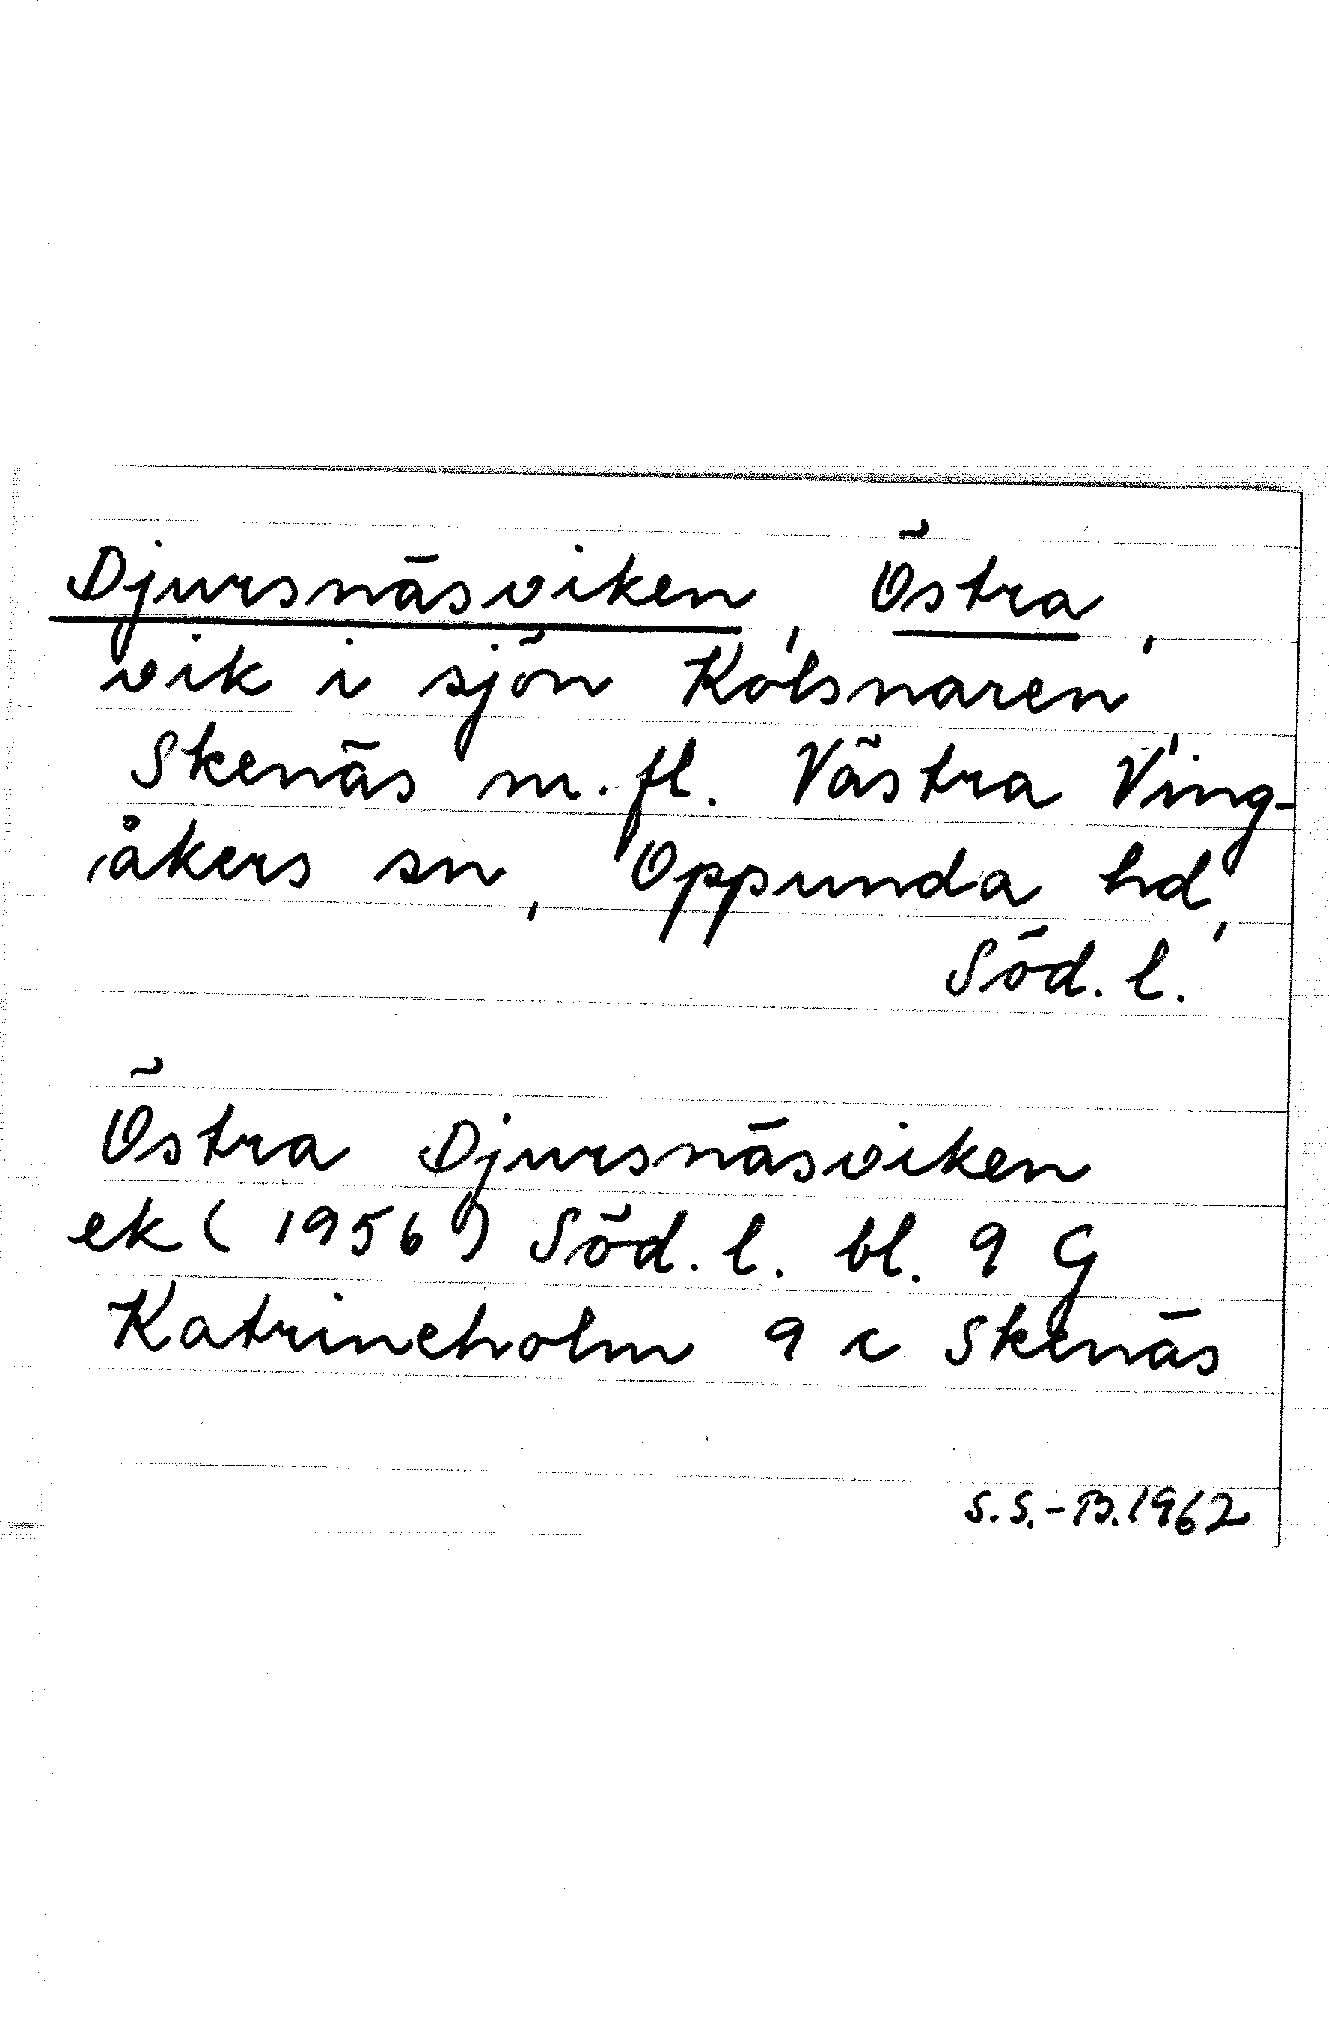 Djursnäsviken, Östra,
vik i sjön Kolsnaren
Skenäs m.fl. Västra Ving-
åkers sn, Oppunda hd,
Söd. l.
Östra Djursnäsviken
ek (1956) Söd. l. bl. 9 G
Katrineholm 9 c Skenäs
S.S.-B. 1962